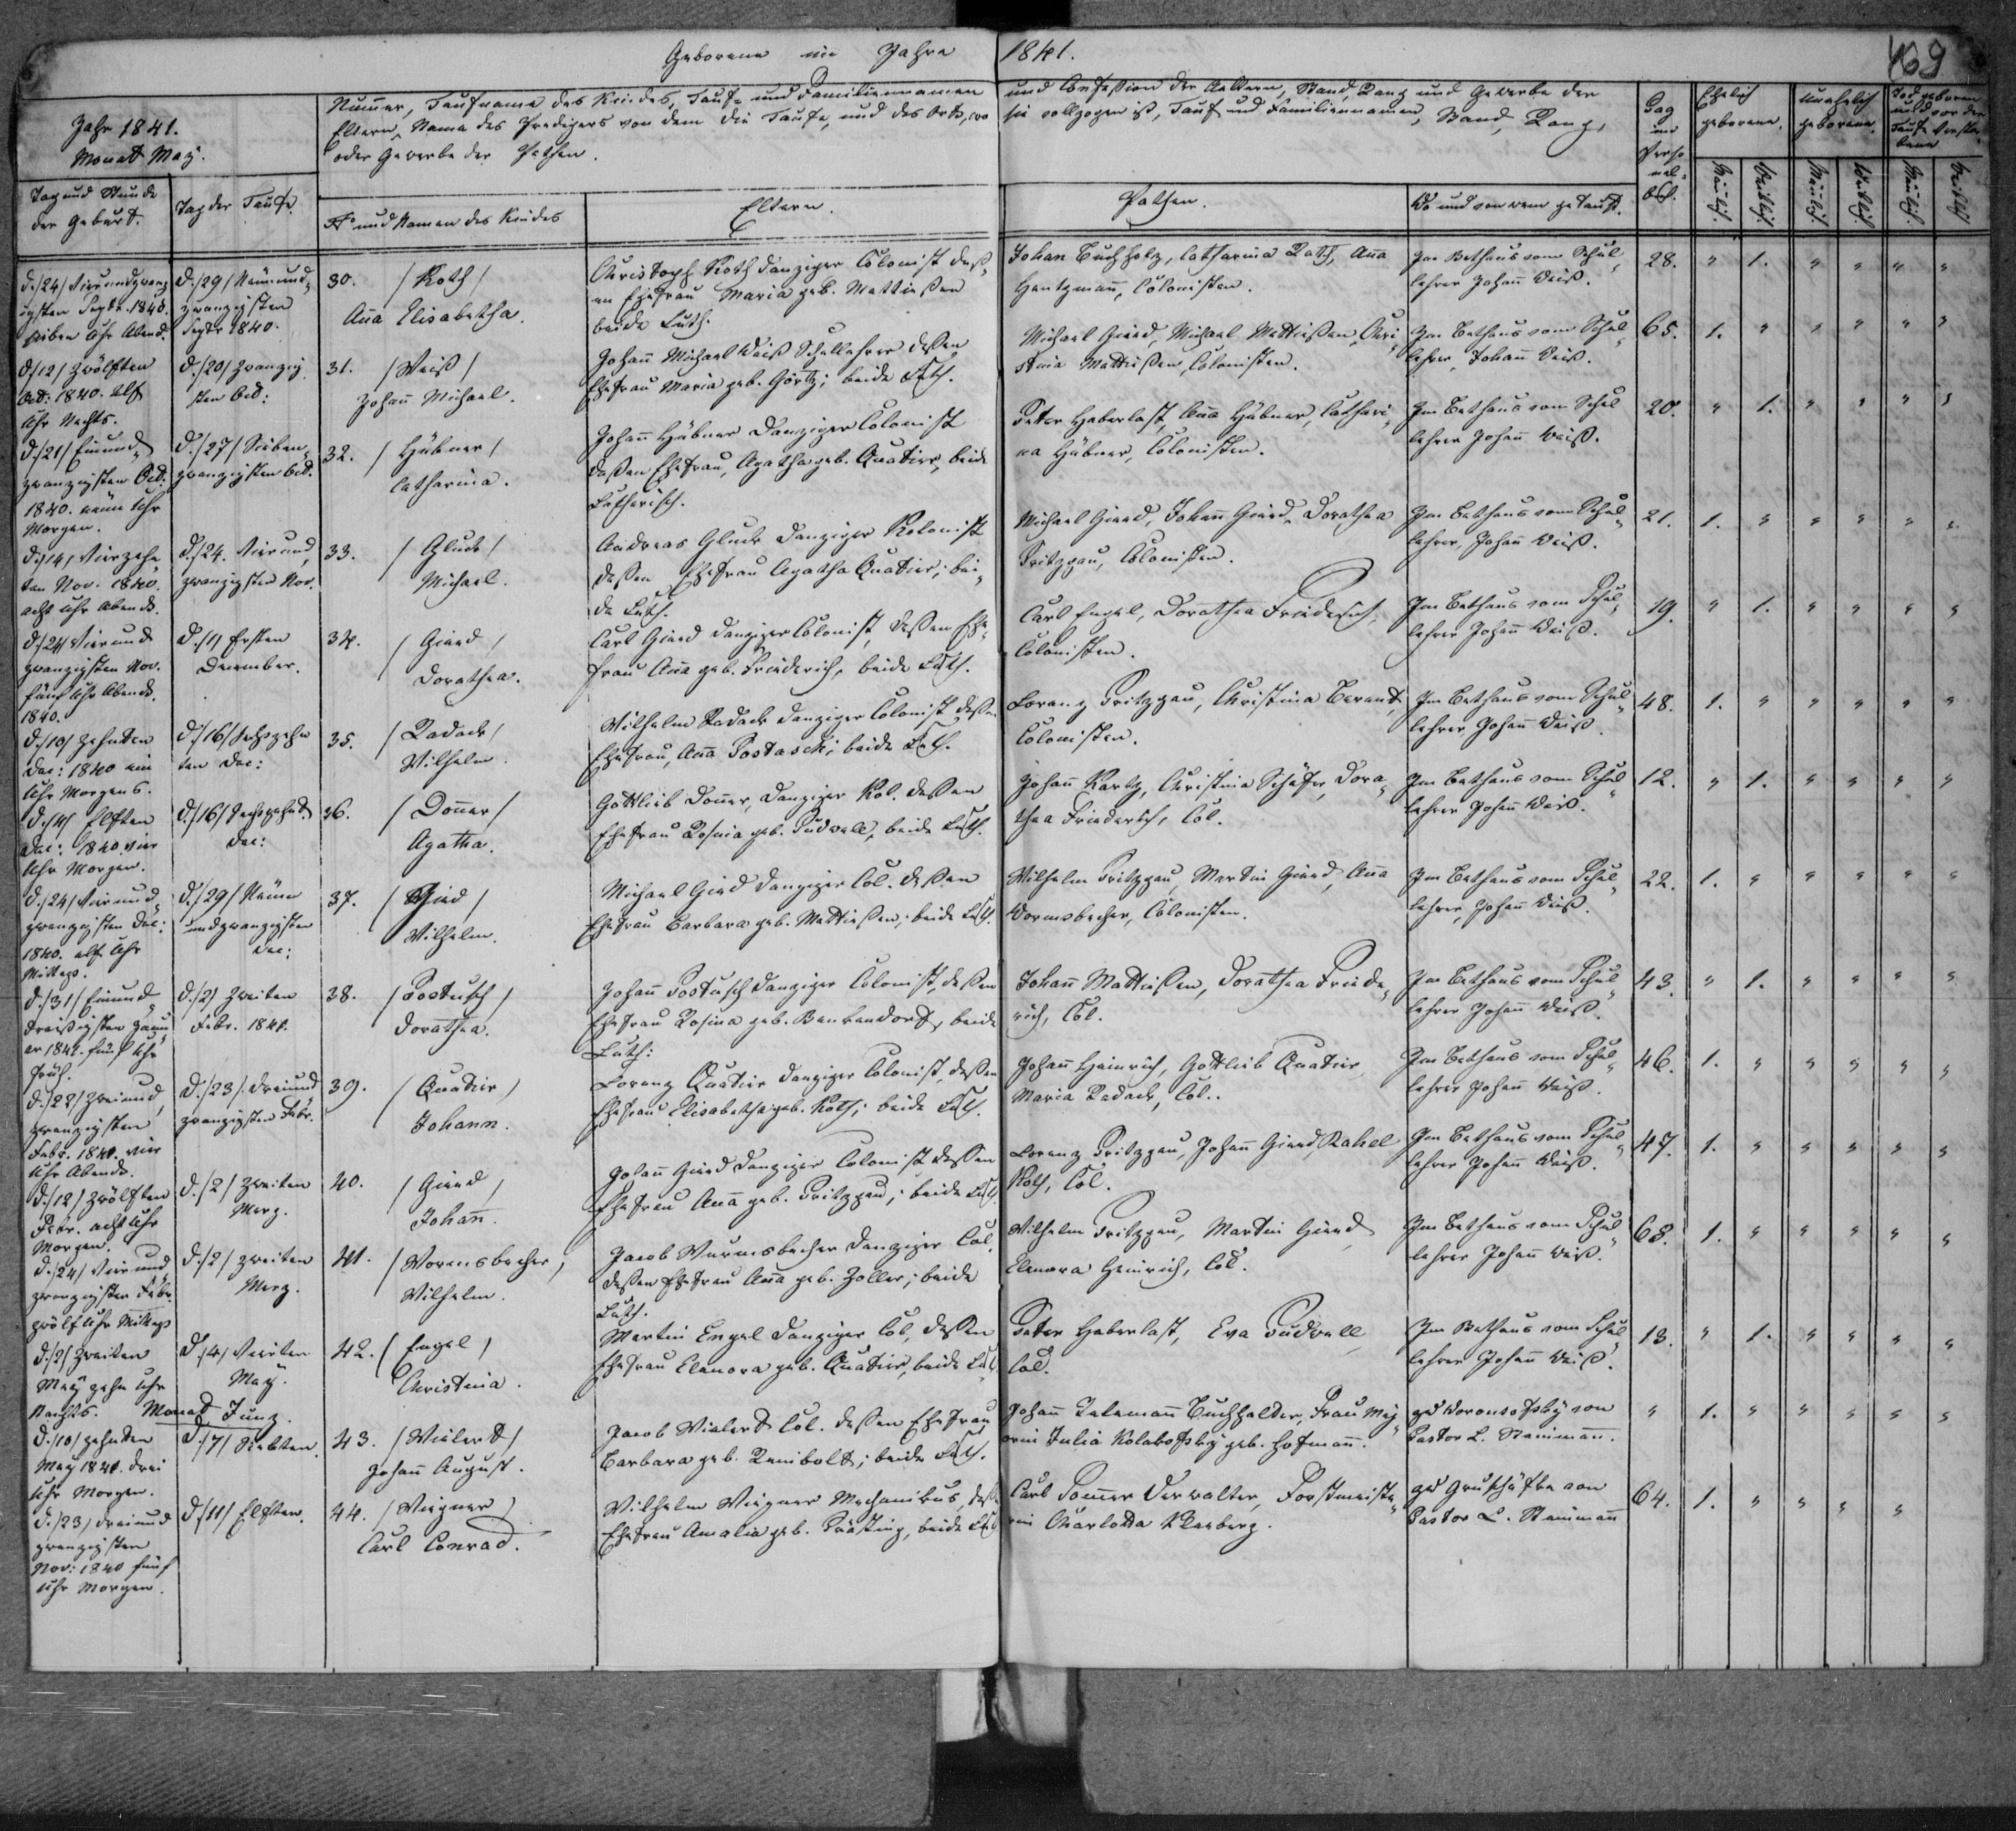 Geborene im Jahre 1841.
469
Jahr 1841.
Monat May.
Numer, Taufname des Kindes, Tauf- und Familiennamen und Confession der Aeltern, Stand, Rang und Gewerbe der
Eltern, Name des Predigers von dem die Taufe, und des Orts, wo sie vollzogen ist, Tauf und Familiennamen, Stand, Rang,
oder Gewerbe der Pathen.
Pag im Personalbuch.
Ehelich geborene.
Unehelich geborene.
Todgeboren und vor der Taufe Verstorbene
Tag und Stunde der Geburt.
Tag der Taufe.
No und Namen des Kindes
Eltern.
Pathen.
Wo und von wem getauft.
Mänlich. Weiblich. Mänlich. Weiblich. Mänlich. Weiblich
d. /24/ Vierundzwanzigsten Septr. 1840. sieben Uhr Abend.
D. /29/ Neunundzwanzigsten Septr 1840.
30. /Roth/
Aña Elisabetha.
Christoph Roth Danziger Colonist deßen Ehefrau Maria geb. Mattießen beide Luth.
Johan Buchholz, Catharina Roth, Aña Hentzmañ, Colonisten.
Im Bethaus vom Schullehrer Johañ Weiß.
28. " 1. " " " "
d. /12/ Zwölften Oct: 1840. elf Uhr Nachts.
D. /20/ Zwanzigsten Oct:
31. /Weiß/
Johañ Michael.
Johañ Michael Weiß Schullehrer deßen Ehefrau Maria geb. Görtz; beide Luth.
Michael Gierd, Michael Mattießen, Christina Mattießen, Colonisten.
Im Bethaus vom Schullehrer, Johañ Weiß.
65. 1. " " " " "
d. /21/ Einundzwanzigsten Oct: 1840. neun Uhr Morgen.
D. /27/ Siebenzwanzigsten Oct.
32. /Hübner/
Catharina.
Johañ Hübner Danziger Colonist deßen Ehefrau, Agatha geb. Quatier, beide Lutherisch.
Peter Haberlast, Aña Hübner, Catharina Hübner, Colonisten.
Im Bethaus vom Schullehrer Johañ Weiß.
20. " 1. " " " "
d. /14/ Vierzehnten Nov. 1840. acht Uhr Abends.
d. /24. Vierundzwanzigsten Nov.
33. /Gluck/
Michael.
Andreas Gluck Danziger Kolonist deßen Ehefrau Agatha Quatier; beide Luth.
Michael Gierd, Johañ Gierd, Dorathea Pritzgau, Colonisten.
Im Bethaus vom Schullehrer, Johañ Weiß.
21. 1. " " " " "
d. /24/ Vierundzwanzigsten Nov. fünf Uhr Abends. 1840.
D. /1/ Ersten December.
34. /Gierd/
Dorathea.
Carl Gierd Danziger Colonist, deßen Ehefrau Aña geb. Friederich, beide Luth.
Carl Engel, Dorathea Friederich, Colonisten.
Im Bethaus vom Schullehrer Johañ Weiß.
19. " 1. " " " "
d. /10/ zehnten Dec: 1840 ein Uhr Morgens.
D. /16/ Sechszehnten Dec:
35. /Radack/
Wilhelm.
Wilhelm Radack Danziger Colonist deßen Ehefrau, Aña Postasch; beide Luth.
Lorenz Pritzgau, Christina Berand, Colonisten.
Im Bethaus vom Schullehrer Johañ Weiß.
48. 1. " " " " "
d. /11/ Elften Dec: 1840. vier Uhr Morgen.
D. /16/ Sechszehnt. Dec:
36. /Doñer/
Agatha.
Gottlieb Doñer, Danziger Kol. deßen Ehefrau Rosina geb. Pudwell, beide Luth.
Johañ Kartz, Christina Schäfer, Dorathea Friederich, Col.
Im Bethaus vom Schullehrer Johañ Weiß.
12. " 1. " " " "
d. /24/ Vierundzwanzigsten Dec: 1840. elf Uhr Mittags.
D. /29/ Neunundzwanzigsten Dec:
37. /Gierd/
Wilhelm.
Michael Gierd Danziger Col. deßen Ehefrau Barbara geb. Mattießen; beide Luth.
Wilhelm Pritzgau, Martin Gierd, Aña Wormsbecher, Colonisten.
Im Bethaus vom Schullehrer, Johañ Weiß.
22. 1. " " " " "
d. /31/ Einunddreißigsten Januar 1841. fünf Uhr Früh.
D. /2/ Zweiten Febr. 1841.
38. /Postusch/
Dorathea.
Johañ Postusch Danziger Colonist, deßen Ehefrau Rosina geb. Benkendorf, beide Luth:
Johañ Mattießen, Dorathea Friederich, Col.
Im Bethaus vom Schullehrer Johañ Weiß.
43. " 1. " " " "
d. /22/ Zweiundzwanzigsten Febr. 1841. vier Uhr Abends.
D. /23/. Dreiundzwanzigsten Febr.
39. /Quatier/
Johann.
Lorenz Quatier Danziger Colonist, deßen Ehefrau Elisabetha geb. Roth; beide Luth.
Johañ Heinrich, Gottlieb Quatier, Maria Radack, Col..
Im Bethaus vom Schullehrer Johañ Weiß.
46. 1. " " " " "
d. /12/ Zwölften Febr. acht Uhr Morgen.
d. /2/ Zweiten Merz.
40. /Gierd/
Johañ.
Johañ Gierd Danziger Colonist deßen Ehefrau Aña geb. Pritzgau; beide Luth.
Lorenz Pritzgau, Johañ Gierd, Rahel Roth, Col.
Im Bethaus vom Schullehrer Johañ Weiß.
47. 1. " " " " "
d. /24/ Vierundzwanzigsten Febr. zwölf Uhr Mittags
d. /2/ zweiten Merz.
41. /Wormsbecher/
Wilhelm.
Jacob Wurmsbecher Danziger Col. deßen Ehefrau Aña geb. Zoller; beide Luth.
Wilhelm Pritzgau, Martin Gierd, Elenora Heinrich, Col.
Im Bethaus vom Schullehrer Johañ Weiß.
68. 1. " " " " "
d. /2/ Zweiten May zehn Uhr Nachts.
D. /4/ Vierten May.
42. /Engel/
Christina.
Martin Engel Danziger Col. deßen Ehefrau Elenora geb. Quatier, beide Luth
Peter Haberlast, Eva Pudwell, Col.
Im Bethaus vom Schullehrer Johañ Weiß.
13. " 1. " " " "
Monat Juny.
d. /10/ zehnten May 1841. drei Uhr Morgen.
d. /7/ Siebten.
43. /Wielert/
Johañ August.
Jacob Wielert Col. deßen Ehefrau Barbara geb. Reinbolt; beide Luth.
Johañ Telemañ Buchhalter, Frau Majorin Julia Kolabofsky geb. Hofmañ.
zu Woronsofsky von Pastor L. Steinmañ.
" 1. " " " " "
d. /23/ Dreiundzwanzigsten Nov: 1840 fünf Uhr Morgen.
D. /11/ Elften.
44. /Wiegner/
Carl Conrad.
Wilhelm Wiegner Mechanikus, deßen Ehefrau Amalia geb. Prästing, beide Luth
Carl Pomer Verwalter, Forstmeisterin Charlotta
zu von Pastor L. Steinmañ
64. 1. " " " " "